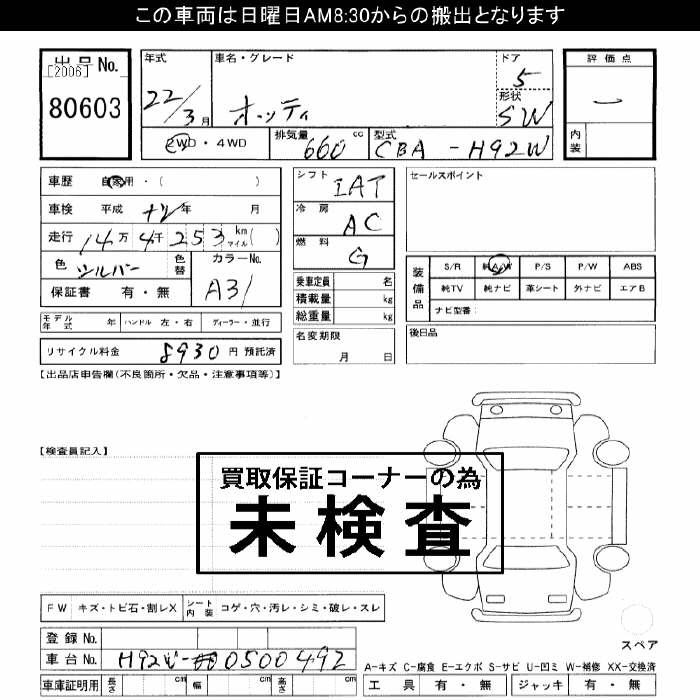 この車両は日曜日AM8:30からの搬出となります
出品No.
[2006]
80603
年式
22/3月
車名・グレード
オッティ
ドア
5
形状
SW
2WD・4WD
排気量
660 cc
型式
CBA-H92W
評価点
内装
車歴 自家用・( )
車検 平成 年 月
走行 14万4千253 km マイル( )
色 シルバー
色替
カラーNo.
A31
保証書 有・無
シフト
IAT
冷房
AC
燃料
G
乗車定員 名
積載量 kg
総重量 kg
名変期限
月 日
セールスポイント
装備品
S/R 純A/W P/S P/W ABS
純TV 純ナビ 革シート 外ナビ エアB
ナビ型番:
後日品
モデル年式 年 ハンドル 左・右 ディーラー・並行
リサイクル料金 8930 円 預託済
【出品店申告欄(不良箇所・欠品・注意事項等)】
【検査員記入】
買取保証コーナーの為
未検査
FW キズ・トビ石・割レX シート内装 コゲ・穴・汚レ・シミ・破レ・スレ
スペア
登録No.
車台No. H92W- 0500492
車庫証明用 長さ 幅 高さ
A-キズ C-腐食 E-エクボ S-サビ U-凹ミ W-補修 XX-交換済
工具 有・無 ジャッキ 有・無